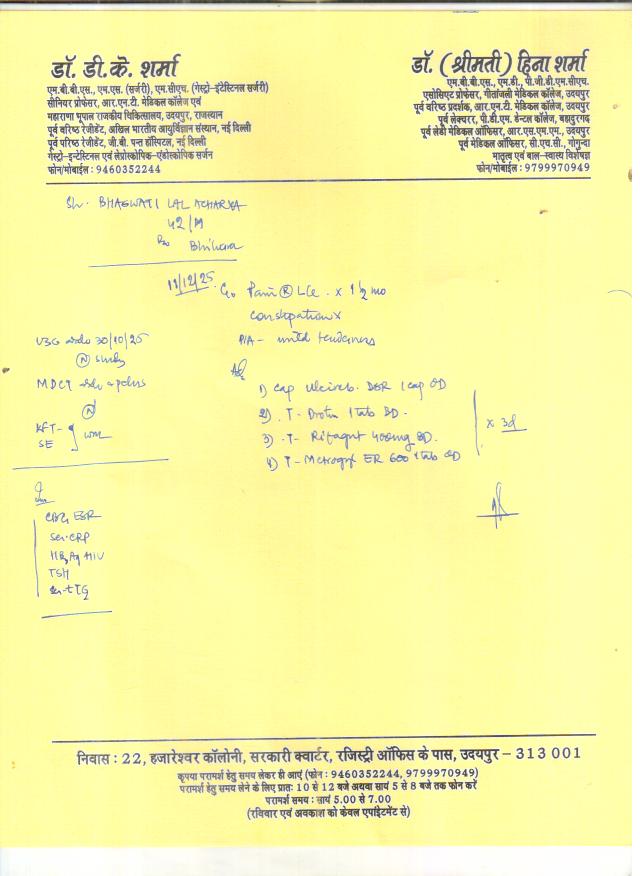 डॉ. डी.के. शर्मा
एम.बी.बी.एस., एम.एस. (सर्जरी), एम.सीएच. (गेस्ट्रो-इंटेस्टिनल सर्जरी)
सीनियर प्रोफेसर, आर.एन.टी. मेडिकल कॉलेज एवं
महाराणा भूपाल राजकीय चिकित्सालय, उदयपुर, राजस्थान
पूर्व वरिष्ठ रेजीडेंट, अखिल भारतीय आयुर्विज्ञान संस्थान, नई दिल्ली
पूर्व वरिष्ठ रेजीडेंट, जी.बी. पन्त हॉस्पिटल, नई दिल्ली
गेस्ट्रो-इन्टेस्टिनल एवं लेप्रोस्कोपिक-एंडोस्कोपिक सर्जन
फोन/मोबाईल : 9460352244
डॉ. (श्रीमती) हिना शर्मा
एम.बी.बी.एस., एम.डी., पी.जी.डी.एम.सीएच.
एसोसिएट प्रोफेसर, गीतांजली मेडिकल कॉलेज, उदयपुर
पूर्व वरिष्ठ प्रदर्शक, आर.एन.टी. मेडिकल कॉलेज, उदयपुर
पूर्व लेक्चरर, पी.डी.एम. डेन्टल कॉलेज, बहादुरगढ़
पूर्व लेडी मेडिकल ऑफिसर, आर.एस.एम.एम., उदयपुर
पूर्व मेडिकल ऑफिसर, सी.एच.सी., गोगुन्दा
मातृत्व एवं बाल-स्वास्थ्य विशेषज्ञ
फोन/मोबाईल : 9799970949
Sh. BHAGWATI LAL ACHARYA
42/M
11/12/25
Pain (R) x 1 1/2 mo
constipation x
P/A - mild tenderness
USG 30/10/25
(N) study
MDCT
(N)
KFT-
SE
1) Cap DSR 1 cap OD
2) T- 1 tab BD.
3) T- 400mg BD.
4) T- Metrogyl ER 600 1 tab OD
x 3d
CBC, ESR
Ser. CRP
HBsAg HIV
TSH
Ser. tTG
निवास : 22, हजारेश्वर कॉलोनी, सरकारी क्वार्टर, रजिस्ट्री ऑफिस के पास, उदयपुर – 313 001
कृपया परामर्श हेतु समय लेकर ही आएं (फोन : 9460352244, 9799970949)
परामर्श हेतु समय लेने के लिए प्रातः 10 से 12 बजे अथवा सायं 5 से 8 बजे तक फोन करें
परामर्श समय : सायं 5.00 से 7.00
(रविवार एवं अवकाश को केवल एपॉइंटमेंट से)